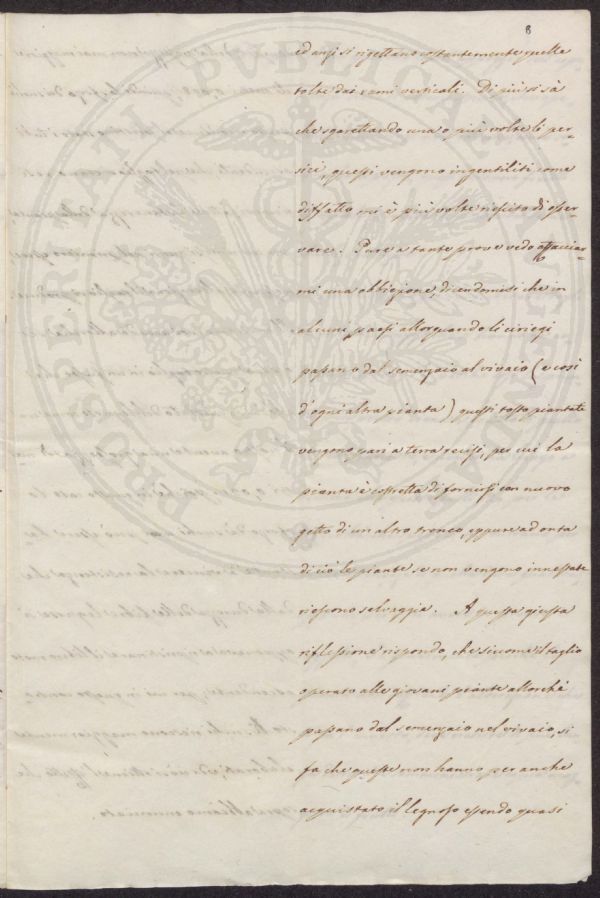 8
ed anzi si rigettano costantemente quelle
tolte dai rami verticali. Di più si sà
che sgarettando una o più volte li per-
sici, questi vengono ingentiliti come
diffatto mi è più volte riescito di osser-
vare. Pure a tante prove vedo affacciar-
mi una obbiezione, dicendomisi che in
alcuni paesi allorquando li ciriegi
passano dal semenzaio al vivaio (e così
d'ogni altra pianta) questi tosto piantati
vengono pari a terra recisi, per cui la
pianta è costretta di fornirsi con nuovo
getto di un altro tronco, eppure ad onta
di ciò le piante se non vengono innestate
riescono selvaggia. A questa giusta
riflessione rispondo, che siccome il taglio
operato alle giovani piante allorchè
passano dal semenzaio nel vivaio, si
fa che queste non hanno per anche
acquistato il legnoso essendo quasi
PROSPERITATI PVBLICAE